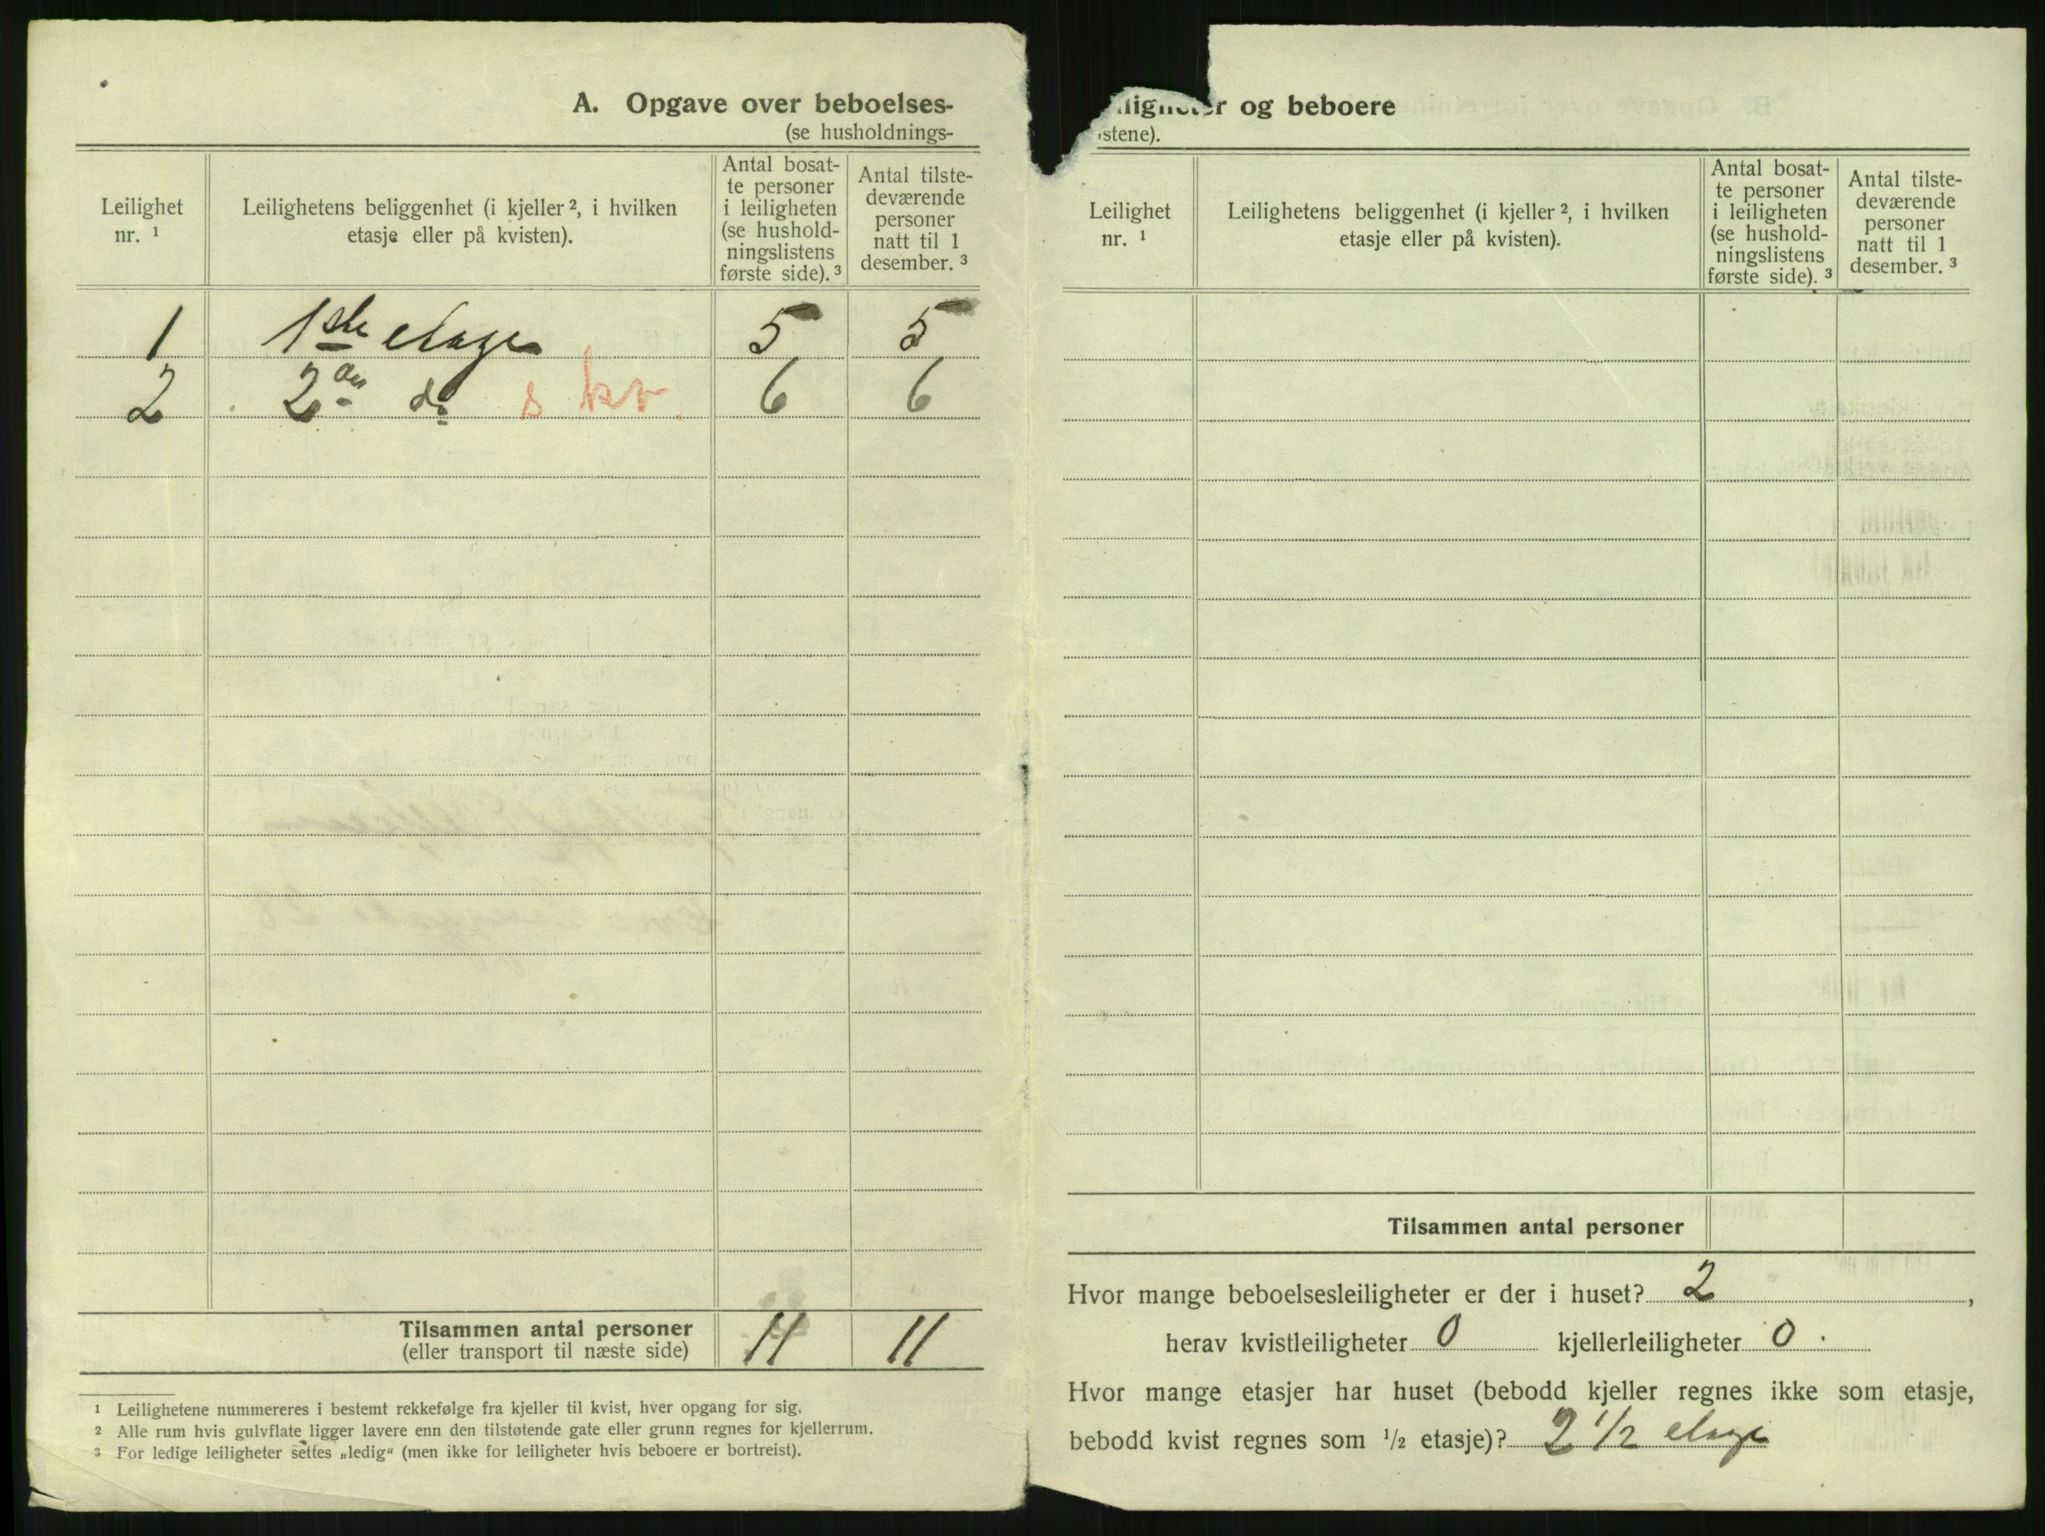 A. Opgave over beboelses-
(se husholdnings-
Leilighet nr. ¹ | Leilighetens beliggenhet (i kjeller ², i hvilken etasje eller på kvisten). | Antal bosatte personer i leiligheten (se husholdningslistens første side). ³ | Antal tilstedeværende personer natt til 1 desember. ³
1 | 1ste etage | 5 | 5
2 | 2den do s kv. | 6 | 6
Tilsammen antal personer | 11 | 11
(eller transport til næste side)
¹ Leilighetene nummereres i bestemt rekkefølge fra kjeller til kvist, hver opgang for sig.
² Alle rum hvis gulvflate ligger lavere enn den tilstøtende gate eller grunn regnes for kjellerrum.
³ For ledige leiligheter settes „ledig“ (men ikke for leiligheter hvis beboere er bortreist).
ligheter og beboere
istene).
Leilighet nr. ¹ | Leilighetens beliggenhet (i kjeller ², i hvilken etasje eller på kvisten). | Antal bosatte personer i leiligheten (se husholdningslistens første side). ³ | Antal tilstedeværende personer natt til 1 desember. ³
Tilsammen antal personer
Hvor mange beboelsesleiligheter er der i huset? 2,
herav kvistleiligheter 0 kjellerleiligheter 0.
Hvor mange etasjer har huset (bebodd kjeller regnes ikke som etasje,
bebodd kvist regnes som ½ etasje)? 2 1/2 etage